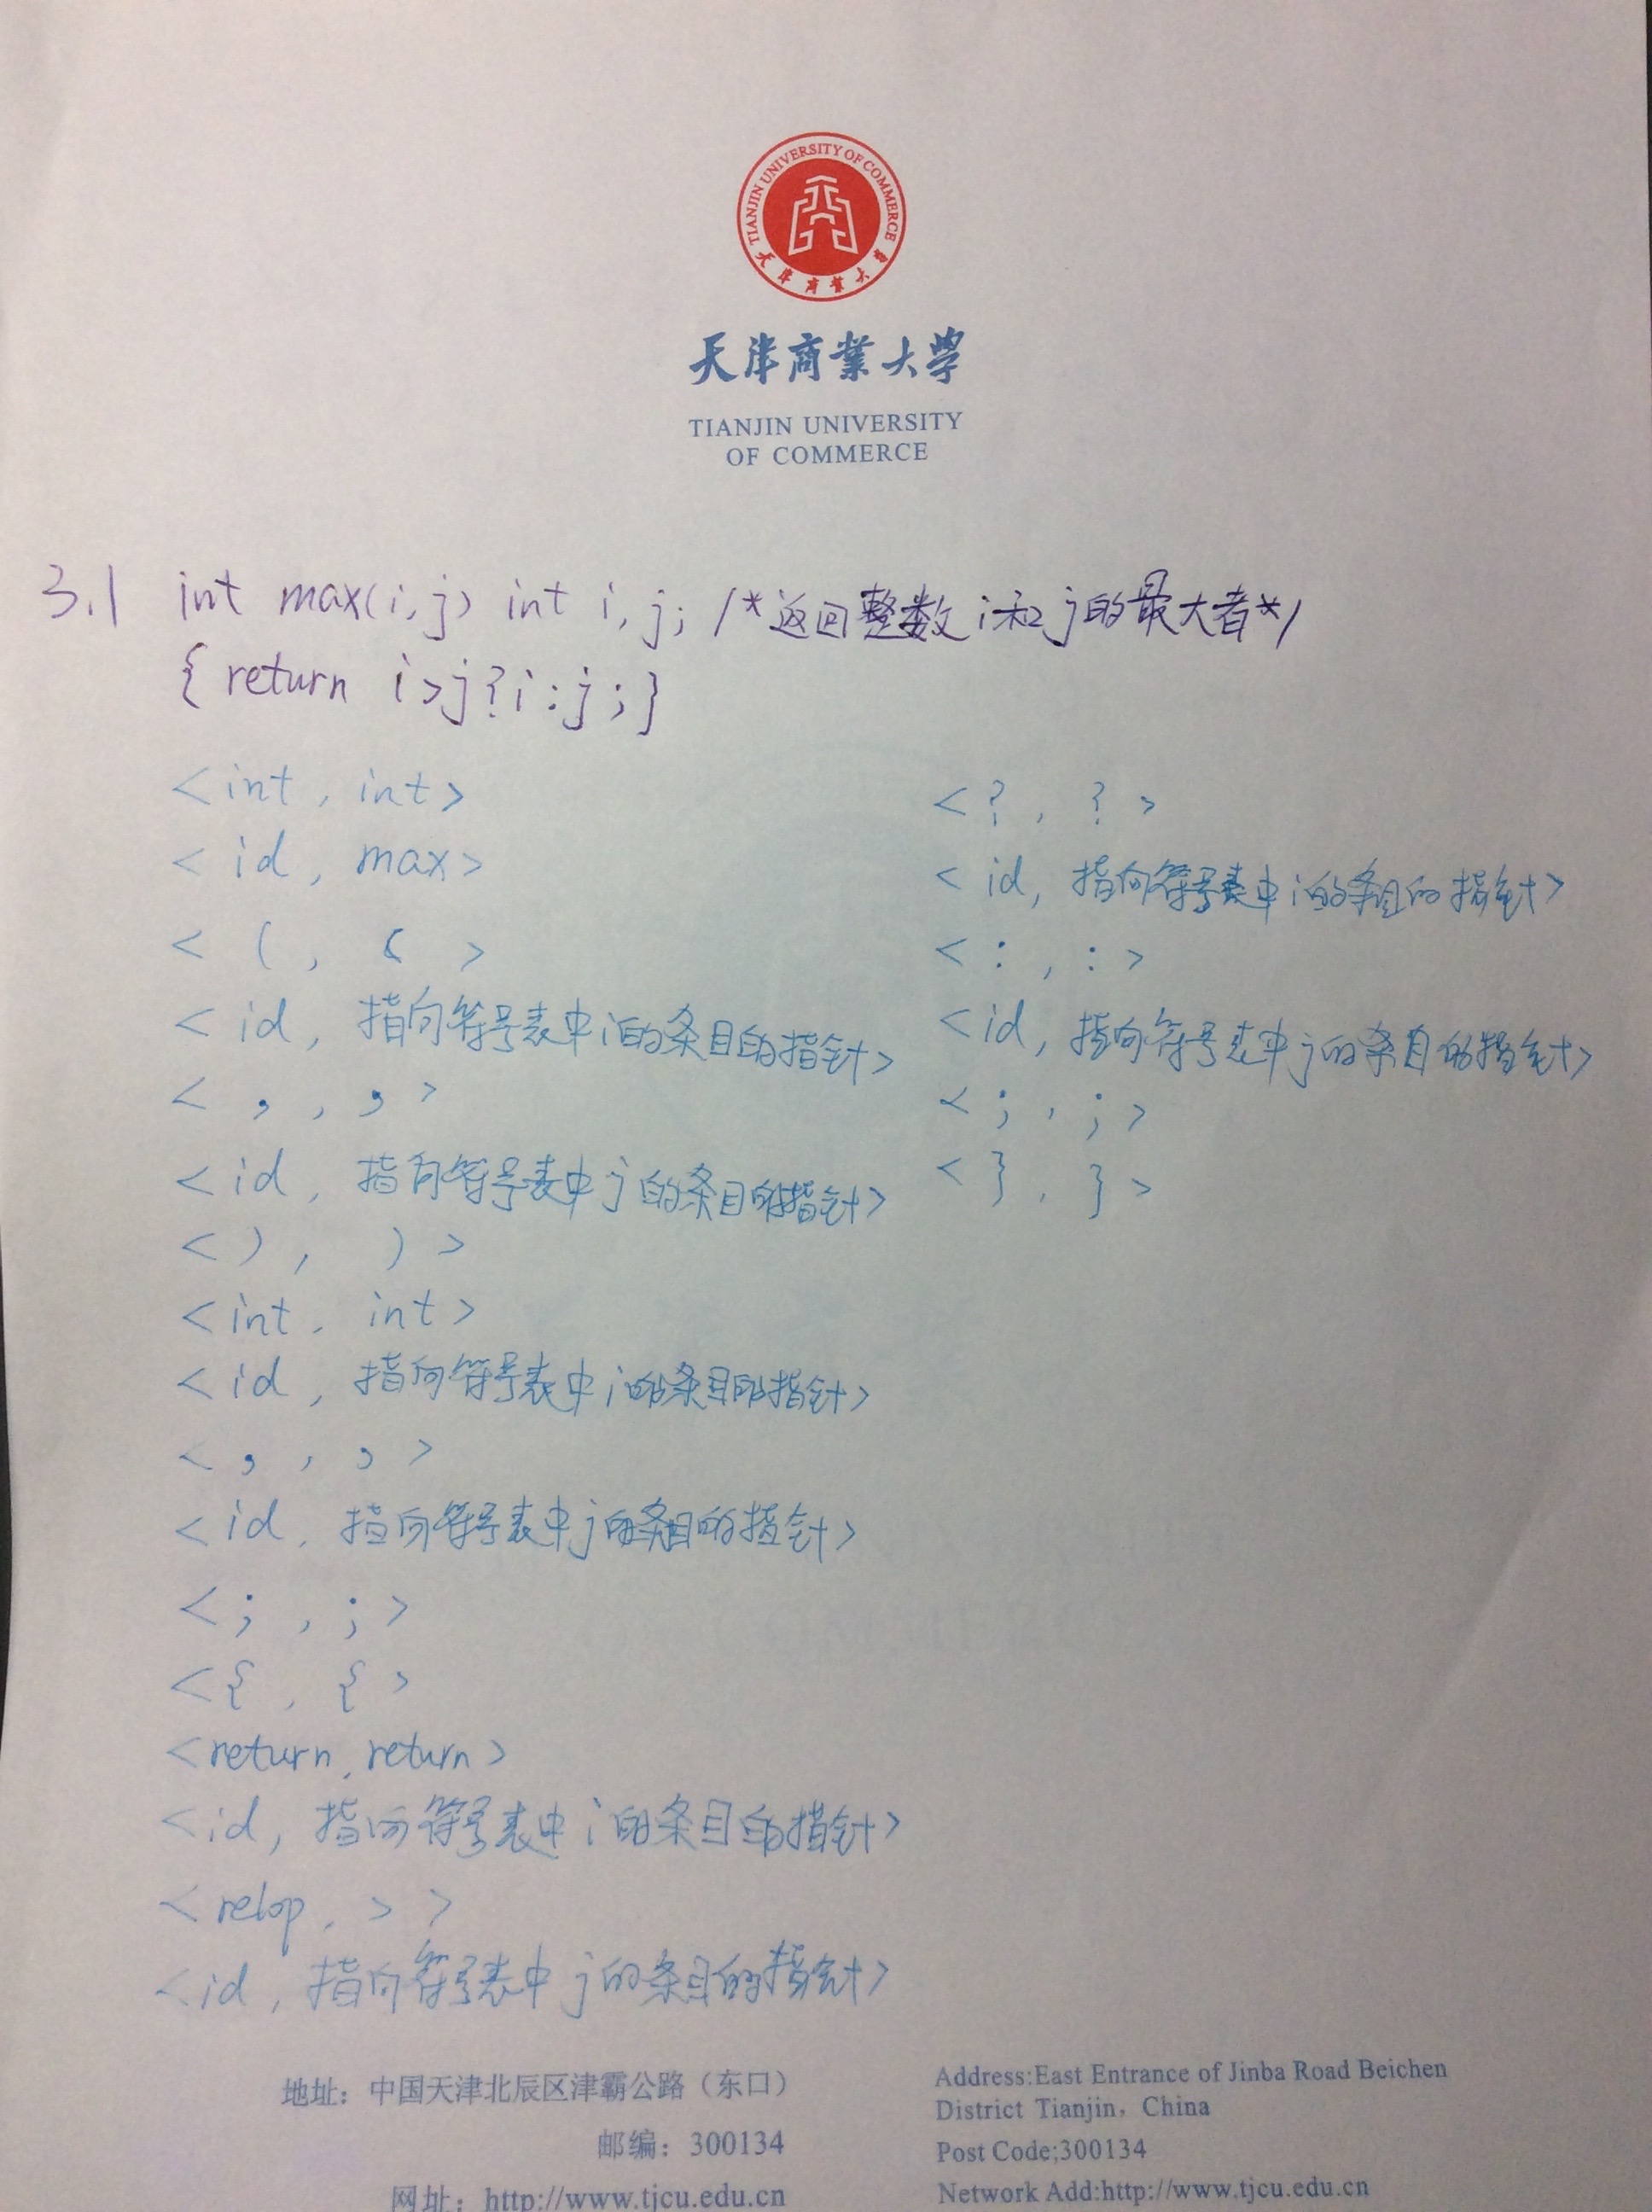 TIANJIN UNIVERSITY OF COMMERCE
天津商業大学
天津商業大学
TIANJIN UNIVERSITY
OF COMMERCE
3.1 int max(i,j) int i,j; /*返回整数i和j的最大者*/
{ return i>j?i:j;}
<int, int>
<id, max>
< (, ( >
<id, 指向符号表中i的条目的指针>
< , , , >
<id, 指向符号表中j的条目的指针>
< ), ) >
<int, int>
<id, 指向符号表中i的条目的指针>
< , , , >
<id, 指向符号表中j的条目的指针>
< ; , ; >
< { , { >
<return, return>
<id, 指向符号表中i的条目的指针>
<relop, > >
<id, 指向符号表中j的条目的指针>
< ? , ? >
<id, 指向符号表中i的条目的指针>
< : , : >
<id, 指向符号表中j的条目的指针>
< ; , ; >
< } , } >
地址：中国天津北辰区津霸公路（东口）
邮编：300134
网址：http://www.tjcu.edu.cn
Address:East Entrance of Jinba Road Beichen
District Tianjin, China
Post Code;300134
Network Add:http://www.tjcu.edu.cn